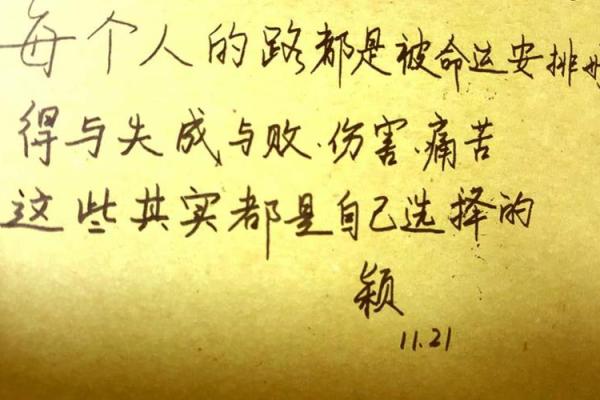 每个人的路都是被命运安排好
得与失成与败.伤害.痛苦
这些其实都是自己选择的
颖
11.21